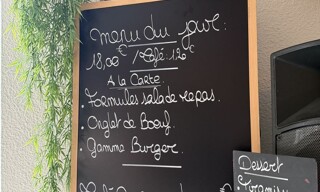 menu du jour:
18,00€ / Café: 1,20€
A la Carte.
• Formules salade repas.
• Onglet de Boeuf.
• Gamme Burger.
Dessert